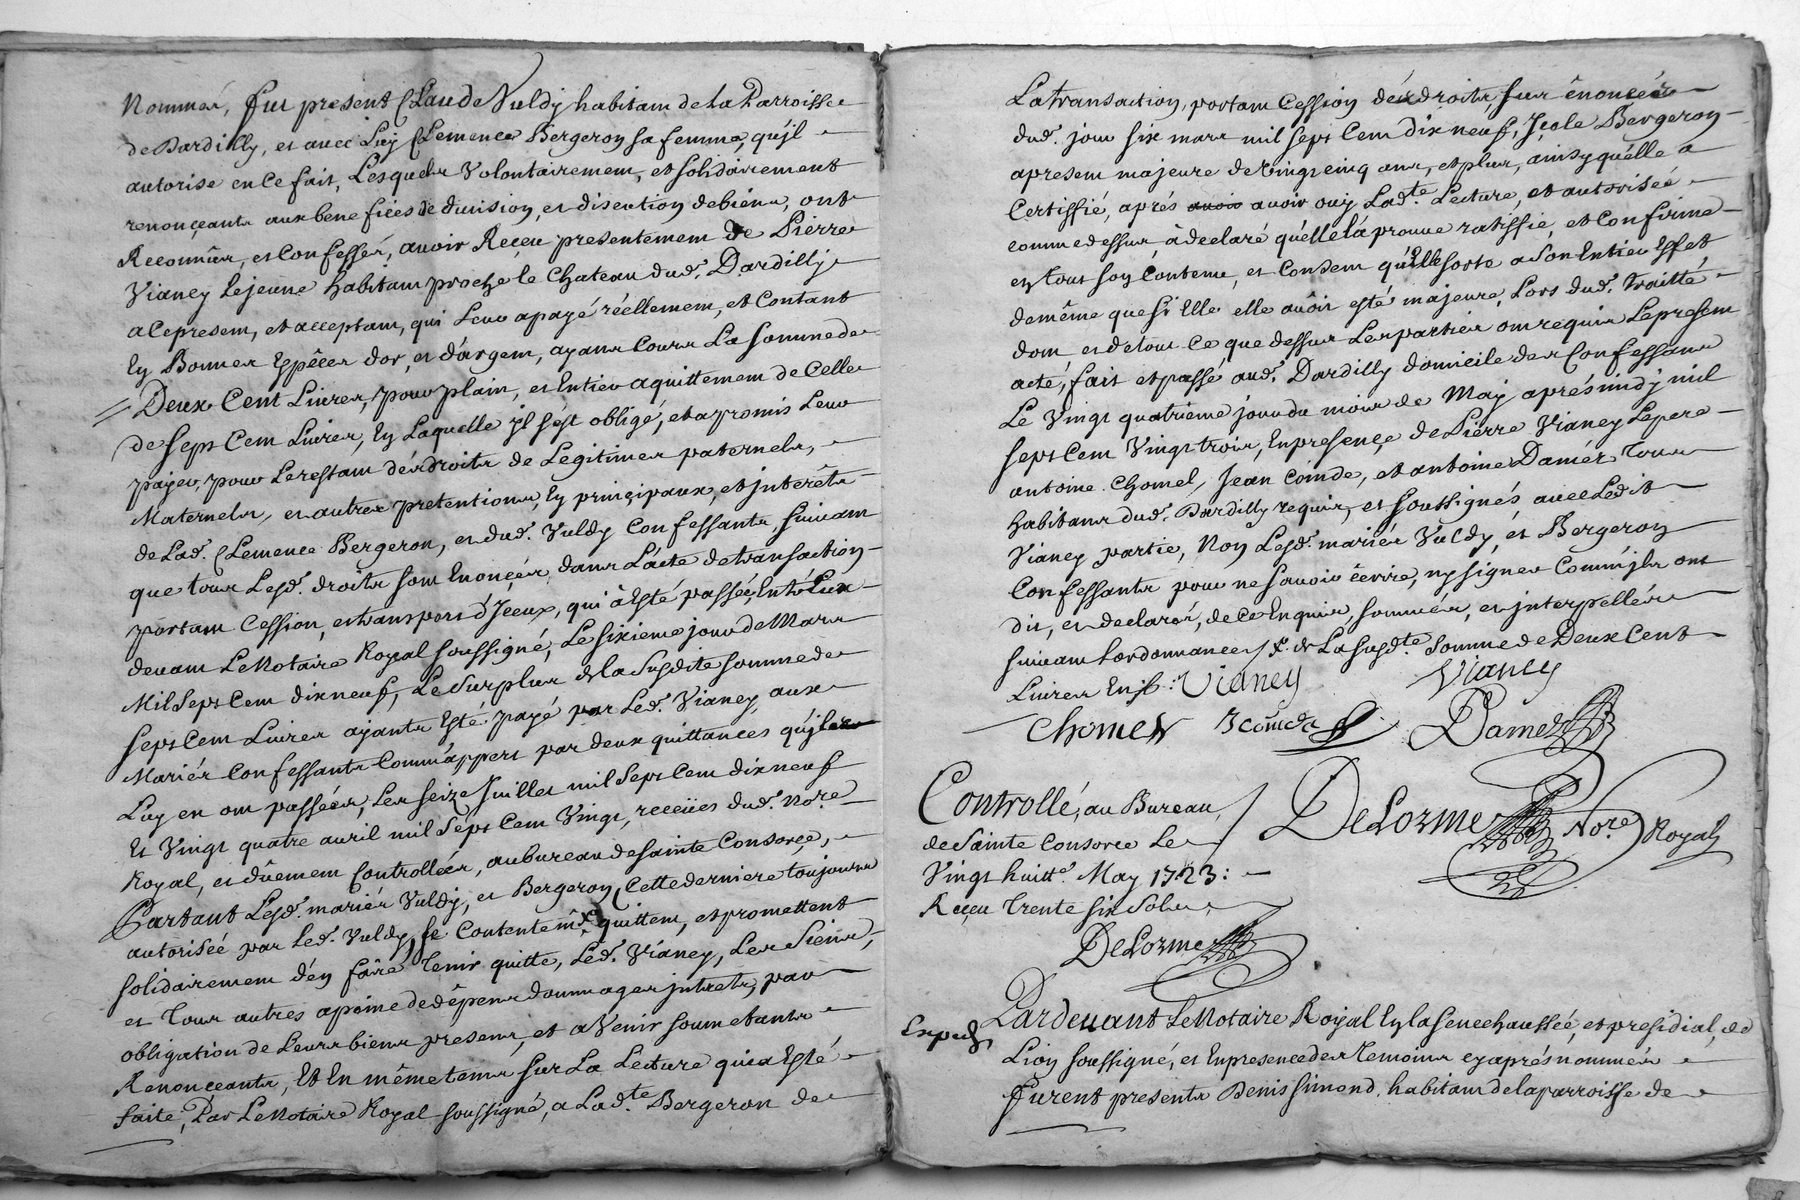 Nommés, fut present Claude Vuldy habitant de la Parroisse
de Dardilly, et avec Luy Clemence Bergeron sa femme, qu'jl
autorise en ce fait, Lesquels Volontairement, et solidairement
renonçeants aux benefiçes de division, et discution de biens, ont
Reconnûs, et Confessés, avoir Reçeu presentement de Pierre
Vianey Lejeune habitant proche le Chateau dud. Dardilly
a Ce present, et acceptant, qui Leur a payé réellement, et Contant
En Bonnes Espêces d'or, et d'argent, ayans Cours La somme de
Deux Cent Livres, pour plain, et Entier aquittement de Celle
de sept Cent Livres, En Laquelle jl s'est obligé, et a promis Leur
payer, pour Le restant dés droits de Legitimes paternels,
Maternels, et autres pretentions, En prinçipaux, et jnterêts
de Lad. Clemence Bergeron, et dud. Vuldy Confessants, suivant
que tous Lesd. droits sont Enonçés, dans L'acte de transaction
portant Cession, et transport d'Jceux, qui à Esté passée, Entr'Eux
devant Le Notaire Royal soussigné, Le sixieme jour de Mars
Mil Sept Cent dix neuf, Le surplus de la Susdite somme de
sept Cent Livres ayants Esté payé par Led. Vianey, aux
Mariés Confessants Comm'appert par deux quittances qu'jls
Luy en ont passées, Les seize Juillet mil sept Cent dix neuf
Et Vingt quatre avril mil sept Cent Vingt, receües dud. Nore
Royal, et dûement Controllées, au bureau de sainte Consorçe,
Partant Lesd. mariés Vuldy, et Bergeron, Cette derniere toujours
autorisée par Led. Vuldy, se Contentent, quittent, et promettent
solidairement d'en faire tenir quitte, Led. Vianey, Les Siens,
et tous autres a peine de dêpens dommages jnterets, par
obligation de Leurs biens presens, et a Venir soumetants
Renonçeants, Et En même tems sur La Lecture qui a Esté
faite, Par Le Notaire Royal soussigné, a Lad.te Bergeron de
La transaction, portant Cession dés droits, sus ênoncés
dud. jour six mars mil sept Cent dix neuf, Jcelle Bergeron
a present majeure de Vingt cinq ans, et plus, ainsy qu'elle a
Certiffié, aprés avoir avoir ouy Lad.te Lecture, et autorisée
comme dessus, à declaré qu'elle l'aprouve ratiffie, et Confirme
en tout son Contenu, et Consent qu'Elle sorte a son Entier Effet
de même que si Elle elle avoit esté majeure, Lors dud. traitté
dont et de tout Ce que dessus Les parties ont requis Le present
acte, fait et passé aud. Dardilly domicile des Confessans
Le Vingt quatrième jour du mois de May aprés midy mil
sept Cent Vingt trois, En presençe de Pierre Vianey Le pere
antoine Chomel, Jean Coinde, et antoine Damés tous
habitans dud. Dardilly requis, et soussignés avec Ledit
Vianey partie, Non Lesd. mariés Vuldy, et Bergeron
Confessants pour ne savoir êcrire, ny signer Comm'jls ont
dit, et declarés, de ce Enquis, sommés, et jnterpellés
suivant L'ordonnance / de La susd.te somme de Deux Cent
Livres Vianey Vianey
Chomel Damés
Controllé, au Bureau DeLorme Nore Royal
de Sainte Consorce Le
Vingt huitt.e May 1723:
Reçeu trente six sols
DeLorme
Exped. Pardevant Le Notaire Royal En la senechaussée, et presidial, de
Lion soussigné, et En presence des temoins cy aprés nommés
Furent presents Denis simond, habitant de la parroisse de